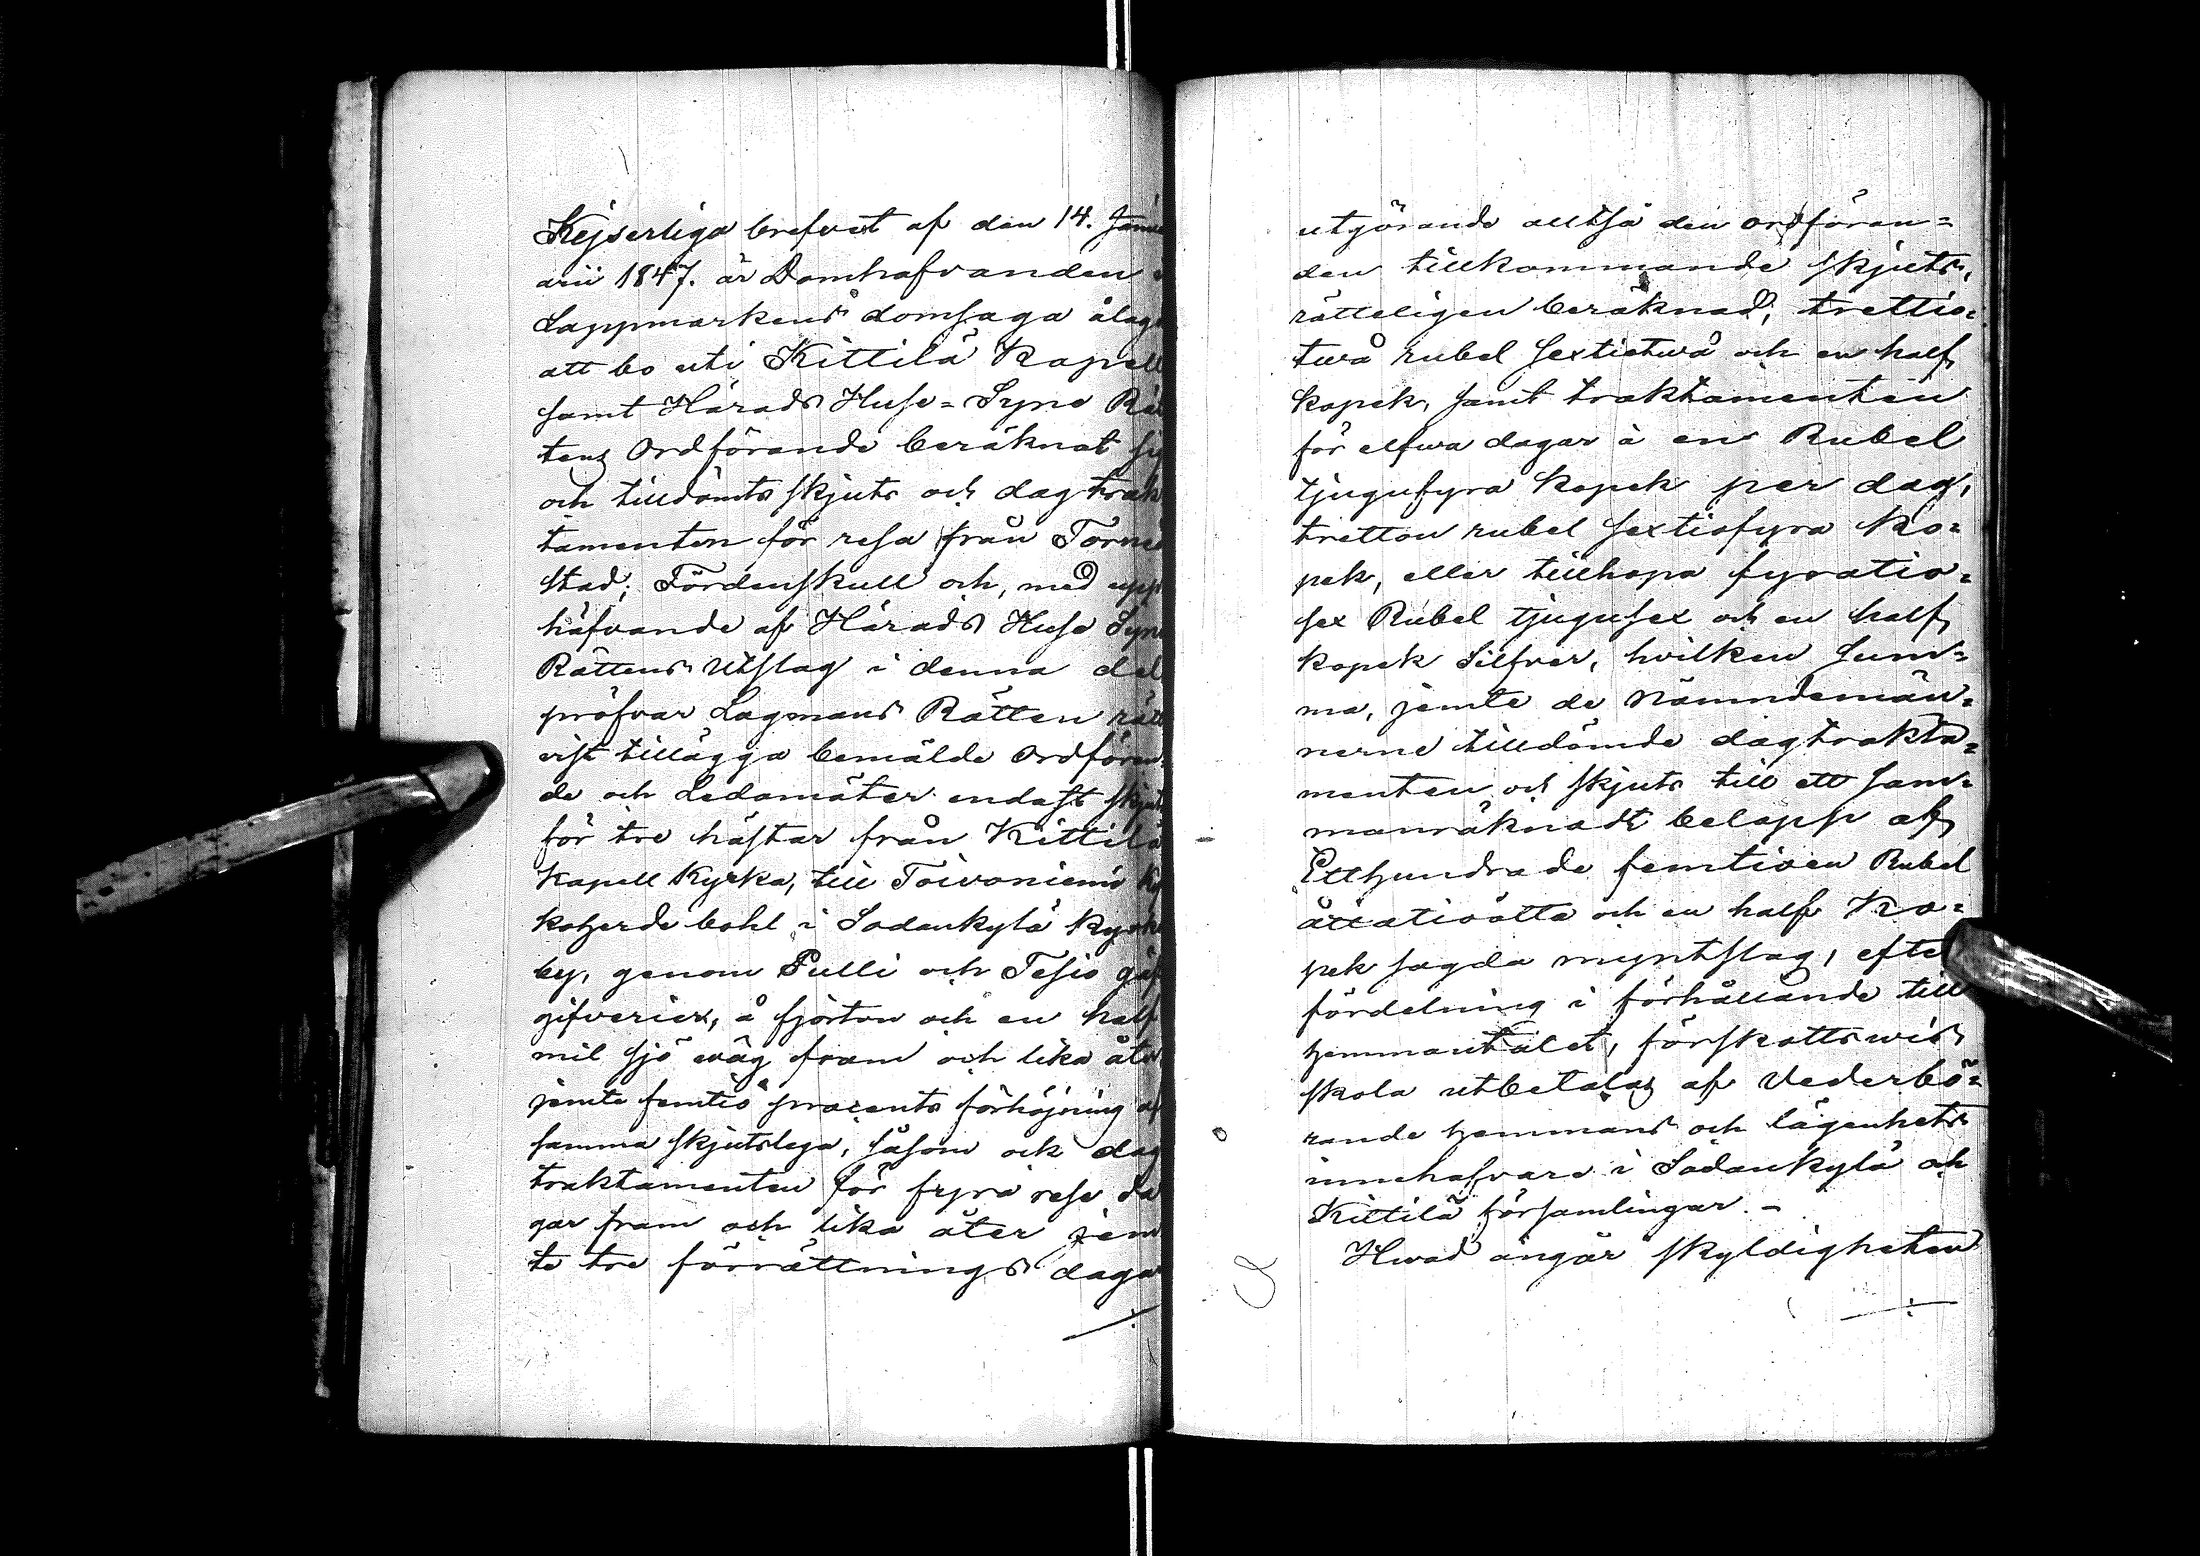 Kejserliga brefvet af den 14. Janu
arii 1847. är Domhafvanden
Lappmarkens domsaga ålag
att bo uti Kittilä Kapell
samt Härads Huse=Syne Rät
tens Ordförande beräknat sig
och tilldömts skjuts och dagtrak
tamenten för resa från Torneå
stad; Fördenskull och, med upp
häfvande af Härads Huse Syne
Rättens Utslag i denna del
pröfvar Lagmans Rätten rätt
vist tillägga bemälde Ordföran
de och Ledamöter endast skjuts
för tre hästar från Kittilä
Kapell Kyrka, till Toivoniemi Ky
koherde bohl i Sodankylä Kyrko
by, genom Pulli och Tesio gäst
gifverier, å fjorton och en half
mil sjö wäg fram och lika åter
jemte femtio procents förhöjning af
samma skjutslega, såsom ock dag
traktamenten för fyra rese da
gar fram och lika åter jem
te tre förrättnings dagar
utgörande alltså den ordföran=
den tillkommande skjuts,
rätteligen beräknad, trettio=
twå rubel sextiotwå och en half
kopek, samt traktamenten
för elfwa dagar à en Rubel
tjugufyra kopek per dag,
tretton rubel sextiofyra Ko=
pek, eller tillhopa fyratio=
sex Rubel tjugusex och en half
kopek Silfver, hvilken Sum=
ma, jemte de Nämndemän=
nerne tilldömde dagtrakta=
menten och skjuts till ett sam=
manräknadt belopp af
Etthundrade femtioen Rubel
åttatioåtta och en half Ko=
pek sagda myntslag, efter
fördelning i förhållande till
hemmantalet, förskottswis
skola utbetalas af Vederbö=
rande hemmans och lägenhets
innehafvare i Sodankylä och
Kittilä församlingar. -
Hwad angår skyldigheten